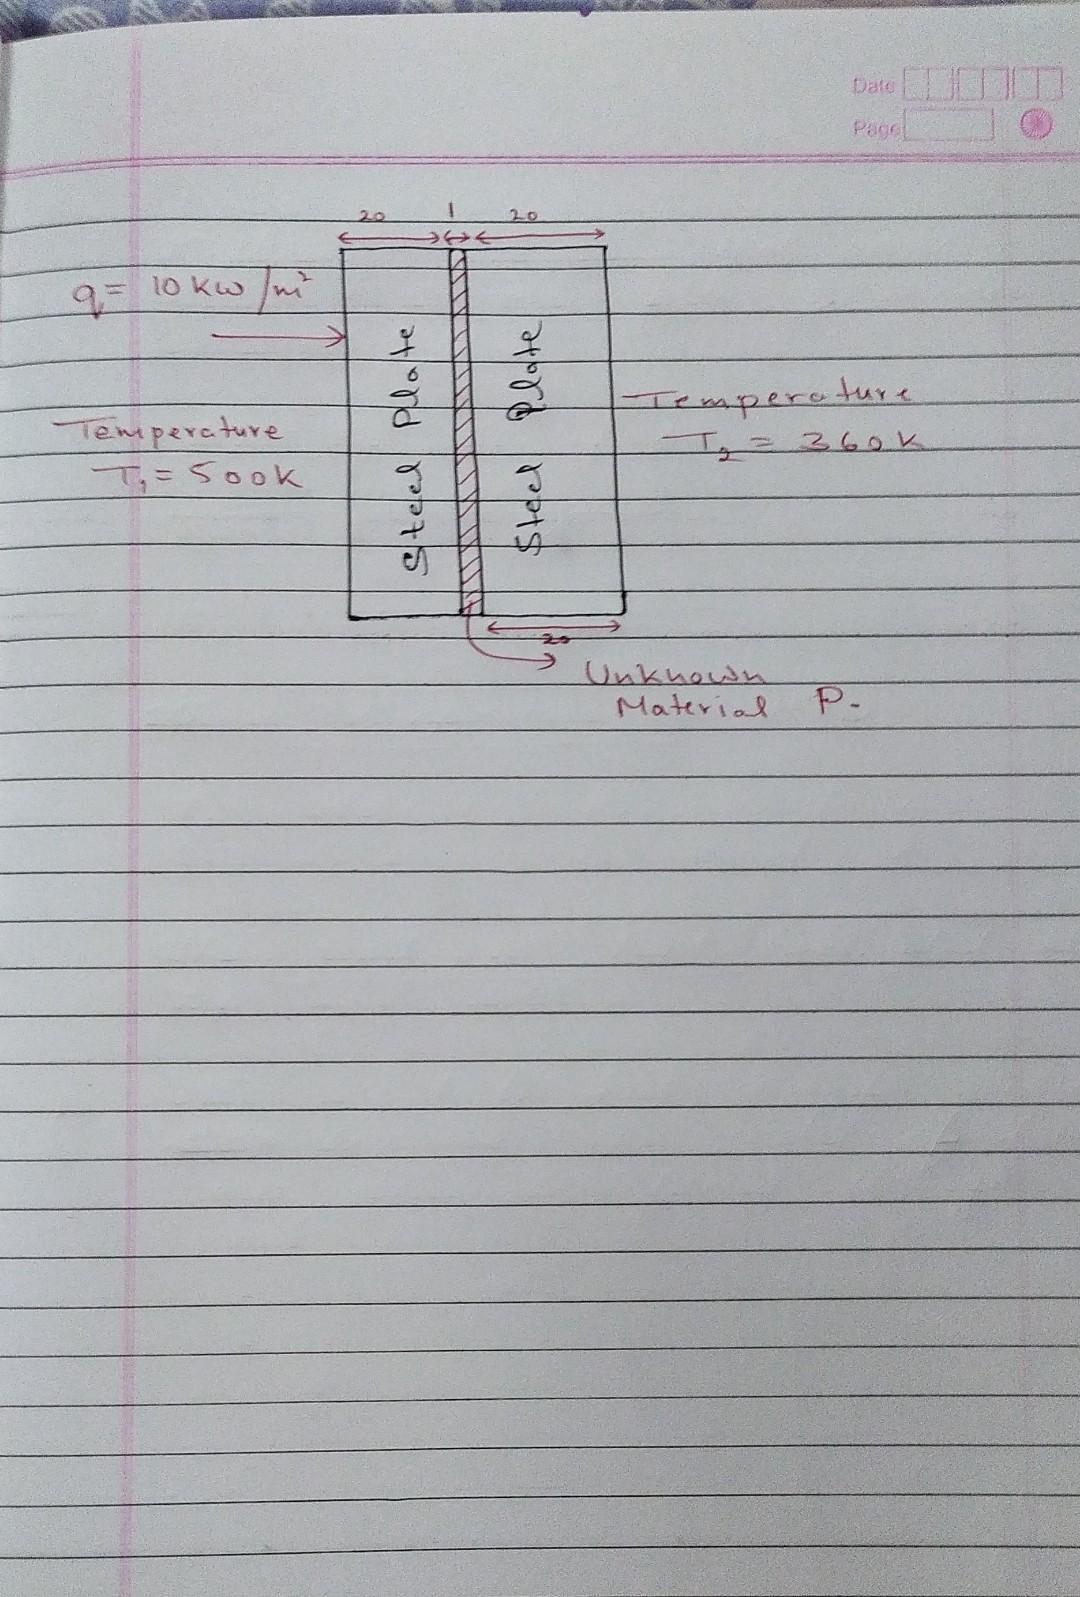 Date
Page
20 1 20
q = 10 kw/m²
Temperature
T₁ = 500K
Steel Plate
Steel Plate
Temperature
T₂ = 360K
20
Unknown
Material P.